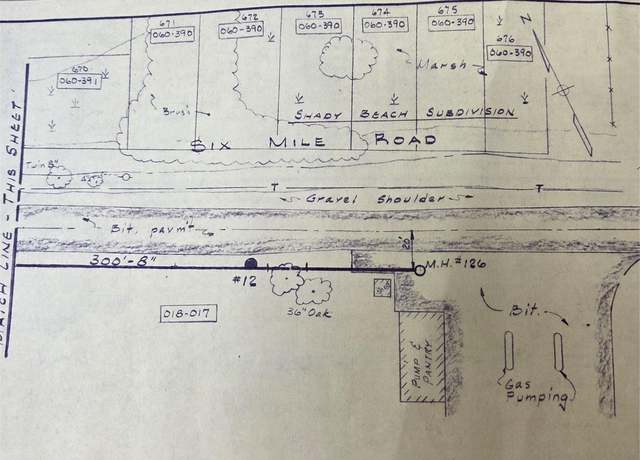 671
672
673
674
675
676
060-390
060-390
060-390
060-390
060-390
060-390
670
060-391
N
Marsh
Brush
SHADY BEACH SUBDIVISION
SIX MILE ROAD
Twin 8"
T
T
Gravel Shoulder
Bit. pavm't
20'
300'-8"
#12
M.H. #126
36" Oak
018-017
Bit.
PUMP &
PANTRY
Gas
Pumping
MATCH LINE - THIS SHEET